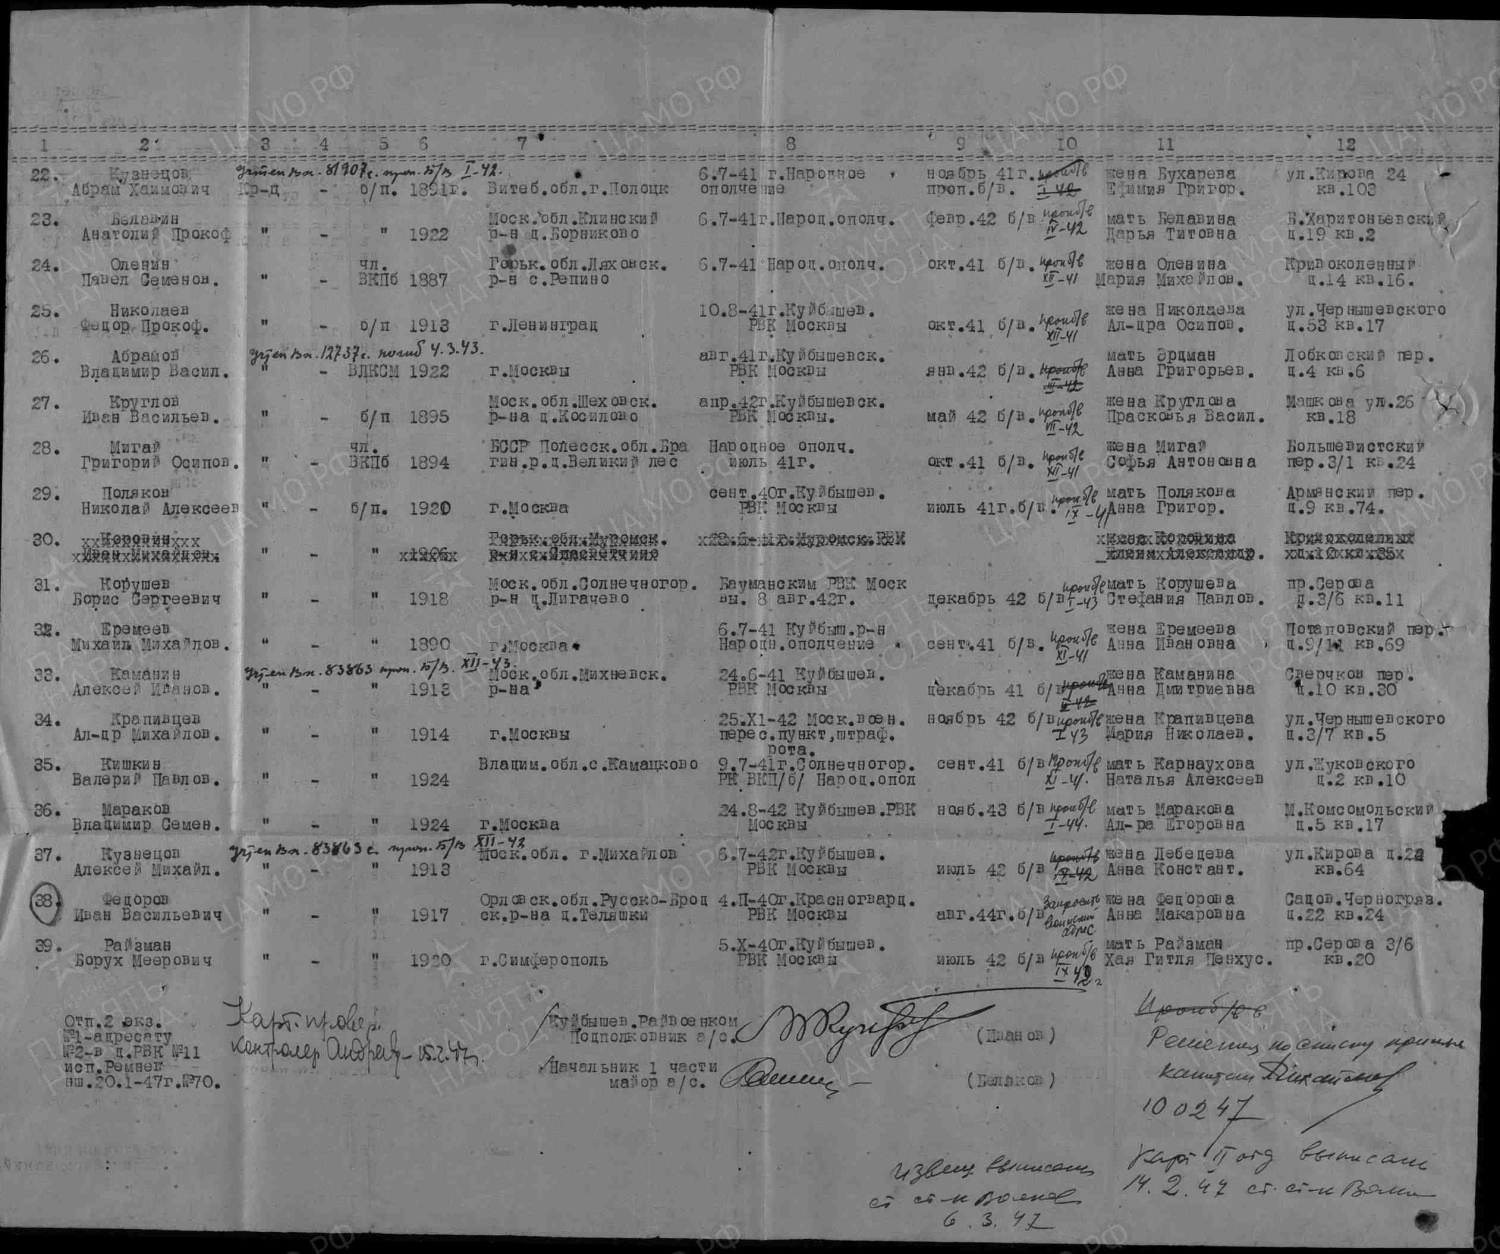 1 2 3 4 5 6 7 8 9 10 11 12
22. Кузнецов учтен вх. 81907с. проп. б/в I-42. 6.7-41 г.Народное ноябрь 41г. проп б/в жена Бухарева ул.Кирова 24
Абрам Хаимович Кр-ц - б/п. 1891г. Витеб.обл.г.Полоцк ополчение проп.б/в. I-42 Ефимия Григор. кв.103
23. Белавин Моск.обл.Клинский 6.7-41г.Народ.ополч. февр.42 б/в проп б/в мать Белавина Б.Харитоньевский
Анатолий Прокоф " - " 1922 р-н д.Борниково IV-42 Дарья Титовна д.19 кв.2
24. Оленин чл. Горьк.обл.Ляховск. 6.7-41 Народ.ополч. окт.41 б/в. проп б/в жена Оленина Кривоколенный
Павел Семенов. " - ВКПб 1887 р-н с.Репино XII-41 Мария Михайлов. д.14 кв.16.
25. Николаев 10.8-41г.Куйбышев. жена Николаева ул.Чернышевского
Федор Прокоф. " - б/п 1913 г.Ленинград РВК Москвы окт.41 б/в. проп б/в XII-41 Ал-дра Осипов. д.53 кв.17
26. Абрамов учтен вх. 12737с. погиб 4.3.43. авг.41г.Куйбышевск. мать Эрдман Лобковский пер.
Владимир Васил. " - ВЛКСМ 1922 г.Москвы РВК Москвы янв.42 б/в. проп б/в III-42 Анна Григорьев. д.4 кв.6
27. Круглов Моск.обл.Шеховск. апр.42г.Куйбышевск. жена Круглова Машкова ул.26
Иван Васильев. " - б/п 1895 р-на д.Косилово РВК Москвы. май 42 б/в. проп б/в VII-42 Прасковья Васил. кв.18
28. Мигай чл. БССР Полесск.обл.Бра Народное ополч. жена Мигай Большевистский
Григорий Осипов. " - ВКПб 1894 гин.р.д.Великий лес июль 41г. окт.41 б/в. проп б/в XII-41 Софья Антоновна пер.3/1 кв.24
29. Поляков сент.40г.Куйбышев. проп б/в мать Полякова Армянский пер.
Николай Алексеев " - б/п. 1920 г.Москва РВК Москвы июль 41г.б/в. IX-41 Анна Григор. д.9 кв.74.
30. Коронин Горьк.обл.Муромск. 23.6-41г.Муромск.РВК жена Коронина Кривоколенный
Иван Михайлов. " - " 1906 Александр.
31. Корушев Моск.обл.Солнечногор. Бауманским РВК Моск проп б/в мать Корушева пр.Серова
Борис Сергеевич " - " 1918 р-н д.Лигачево вы. 8 авг.42г. декабрь 42 б/в I-43 Стефания Павлов. д.3/6 кв.11
32. Еремеев 6.7-41 Куйбыш.р-н жена Еремеева Потаповский пер.
Михаил Михайлов. " - " 1890 г.Москва Народн.ополчение сент.41 б/в. проп б/в XI-41 Анна Ивановна д.9/11 кв.69
33. Каманин учтен вх. 83863 проп. б/в. XII-43. Моск.обл.Михневск. 24.6-41 Куйбышев. жена Каманина Сверчков пер.
Алексей Иванов. " - " 1913 р-на РВК Москвы декабрь 41 б/в проп б/в II-42 Анна Дмитриевна д.10 кв.30
34. Крапивцев 25.XI-42 Моск.воен. ноябрь 42 б/в проп б/в жена Крапивцева ул.Чернышевского
Ал-др Михайлов. " - " 1914 г.Москвы перес.пункт,штраф. I 43 Мария Николаев. д.3/7 кв.5
рота.
35. Кишкин Владим.обл.с.Камацково 9.7-41г.Солнечногор. сент.41 б/в проп б/в мать Карнаухова ул.Жуковского
Валерий Павлов. " - " 1924 РК ВКП/б/ Народ.опол XI-41. Наталья Алексеев д.2 кв.10
36. Мараков 24.8-42 Куйбышев.РВК нояб.43 б/в проп б/в мать Маракова М.Комсомольский
Владимир Семен. " - " 1924 г.Москва Москвы I-44. Ал-ра Егоровна д.5 кв.17
37. Кузнецов учтен вх. 83863с. проп. б/в XII-42 Моск.обл. г.Михайлов 6.7-42г.Куйбышев. проп б/в жена Лебедева ул.Кирова д.22
Алексей Михайл. " - " 1913 РВК Москвы июль 42 б/в IX-42 Анна Констант. кв.64
38. Федоров Орловск.обл.Русско-Брод 4.П-40г.Красногвард. Запросить жена Федорова Садов.Черногряз.
Иван Васильевич " - " 1917 ск.р-на д.Теляшки РВК Москвы авг.44г.б/в воинский адрес Анна Макаровна д.22 кв.24
39. Райзман 5.X-40г.Куйбышев. мать Райзман пр.Серова 3/6
Борух Меерович " - " 1920 г.Симферополь РВК Москвы июль 42 б/в проп б/в IX 42г Хая Гитля Пенхус. кв.20
Отп.2 экз.
№1-адресату
№2-в д.РВК №11
исп.Ремнев
нш.20.1-47г.№70.
Карт. провер.
Контролер 15.2.47г.
Куйбышев.Райвоенком
Подполковник а/с. (Иванов)
Начальник 1 части
майор а/с. (Беляков)
Проп б/в
Решения по списку принял
капитан
10 02 47
Карт II отд выписал
14.2.47 ст. с-т
Извещ. выписал
ст с-т
6.3.47